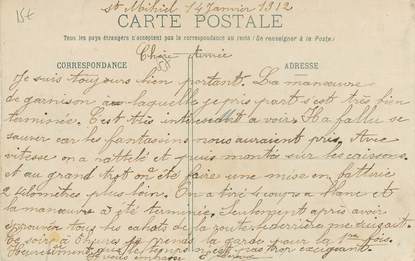 15€
St Mihiel 14 Janvier 1912
CARTE POSTALE
Tous les pays étrangers n'acceptent pas la correspondance au recto (Se renseigner à la Poste).
Chère Aimée
CORRESPONDANCE
ADRESSE
Je suis toujours bien portant. La manœuvre
de garnison à laquelle je pris part s'est très bien
terminée. C'est très intéressant a voir. Il a fallu se
sauver car les fantassins nous auraient pris, Avec
vitesse on a rattelé et puis montés sur les caissons
et au grand trot on a été faire une mise en batterie
2 kilomètres plus loin. On a tiré 4 coups a blanc et
la manœuvre a été terminée. Seulement après avoir
éprouver tous les cahots de la route le derrière me cuisait.
Ce soir à 5 heures je prends la garde pour la 1ère fois.
Heureusement que le temps n'est pas trop exigeant.
vous embrasse